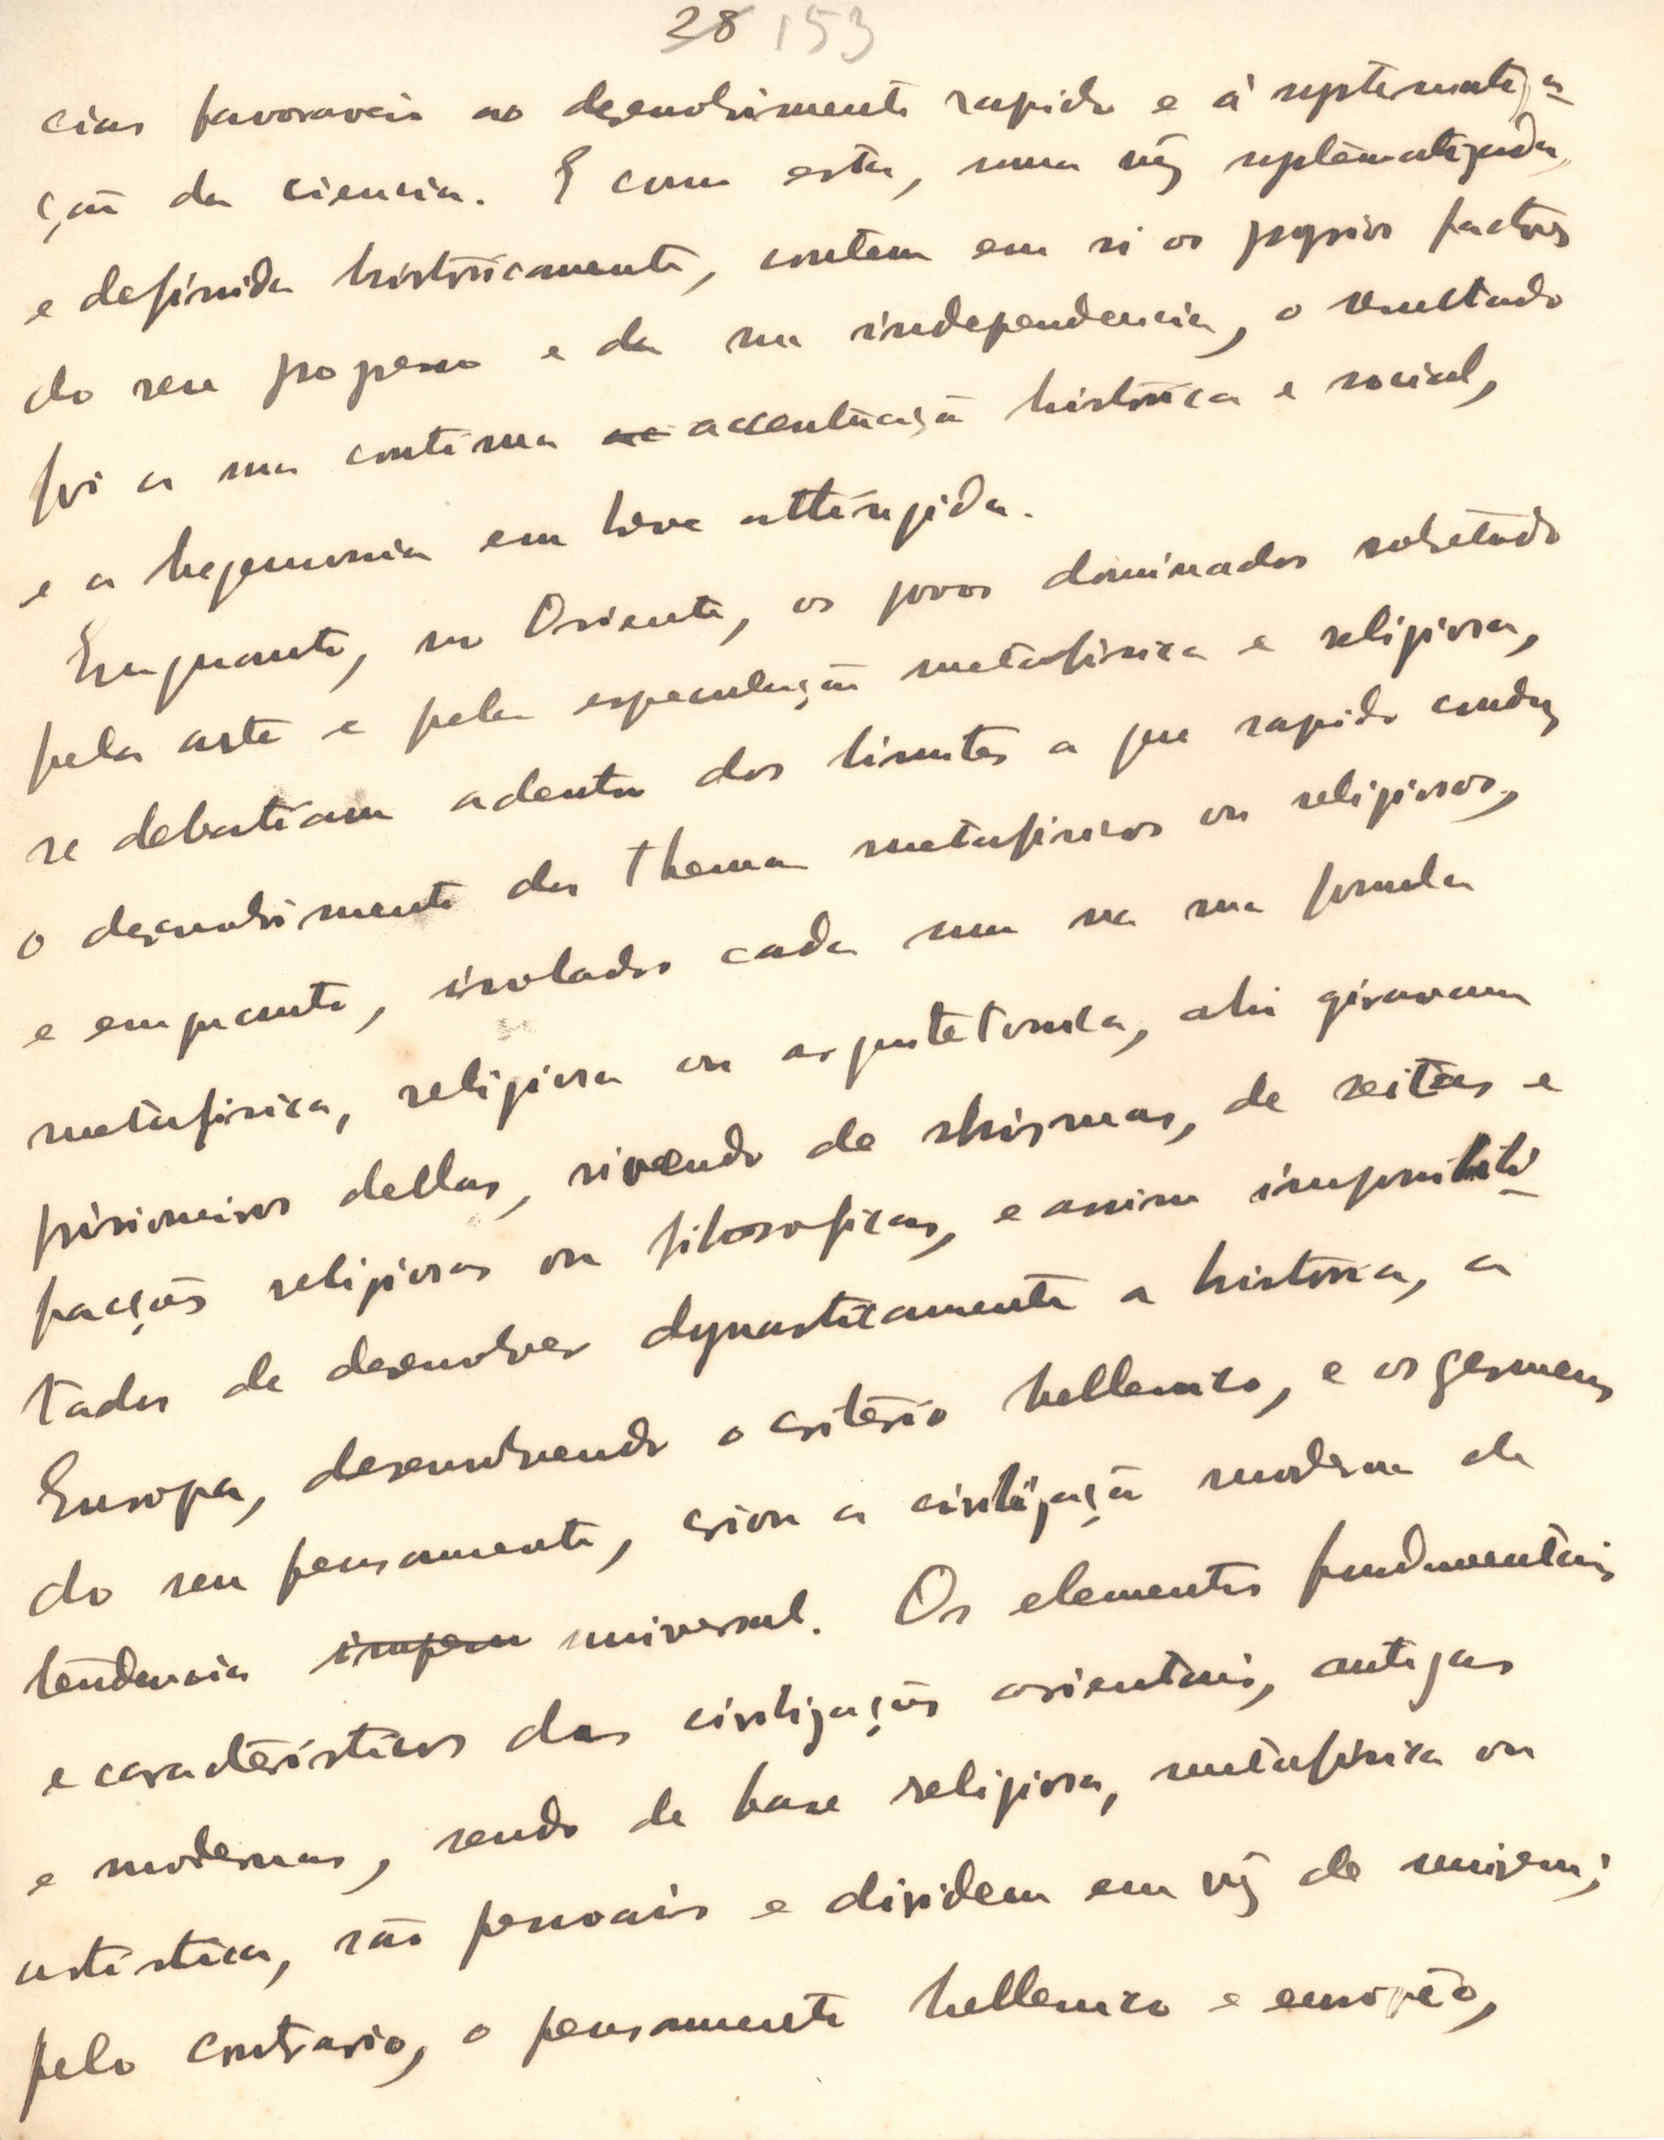 28 153
cias favoraveis ao desenvolvimento rapido e á systematiza-
ção da ciencia. E como esta, uma vez systematizada,
e definida historicamente, contem em si os proprios factores
do seu progresso e da sua independencia, o resultado
foi a sua continua ac accentuação historica e social,
e a hegemonia em breve attingida.
Emquanto, no Oriente, os povos dominados sobretudo
pela arte e pela especulação metafisica e religiosa,
se debatiam adentro dos limites a que rapido conduz
o desenvolvimento dos themas metafisicos ou religiosos,
e emquanto, isolados cada um na sua formula
metafisica, religiosa ou arquitetonica, ahi giravam
prisioneiros dellas, vivendo de shismas, de seitas e
facções religiosas ou filosoficas, e assim impossibili-
tados de desenvolver dynasticamente a historia, a
Europa, desenvolvendo o criterio hellenico, e os germens
do seu pensamento, criou a civilização moderna de
tendencia impera universal. Os elementos fundamentais
e caracteristicos das civilizações orientais, antigas
e modernas, sendo de base religiosa, metafisica ou
artistica, são pessoais e dividem em vez de unirem;
pelo contrario, o pensamento hellenico e europêo,